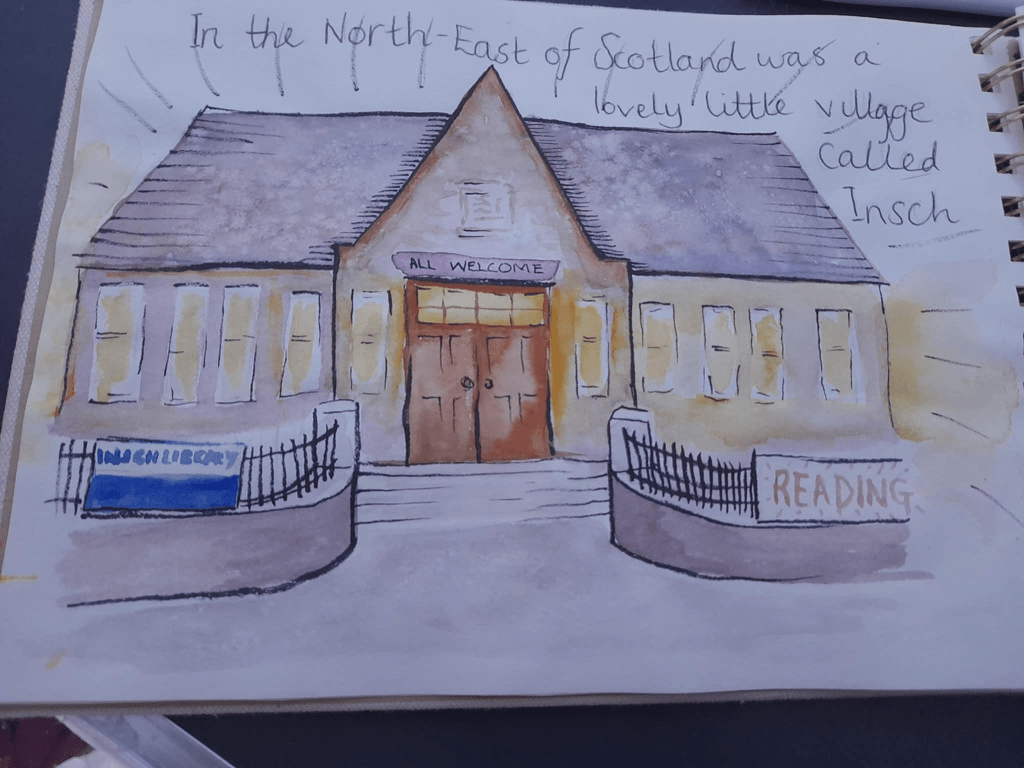 In the North-East of Scotland was a
lovely little village
called
Insch
ALL WELCOME
INSCH LIBRARY
READING